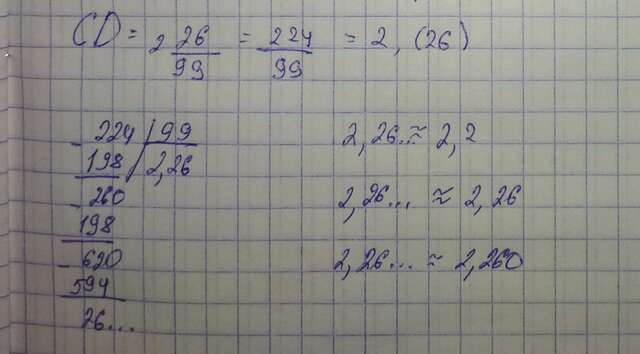 CD = 2 26/99 = 224/99 = 2, (26)
- 224 | 99
198 | 2,26
- 260
198
- 620
594
26...
2, 26... ≈ 2, 2
2, 26... ≈ 2, 26
2, 26... ≈ 2, 260